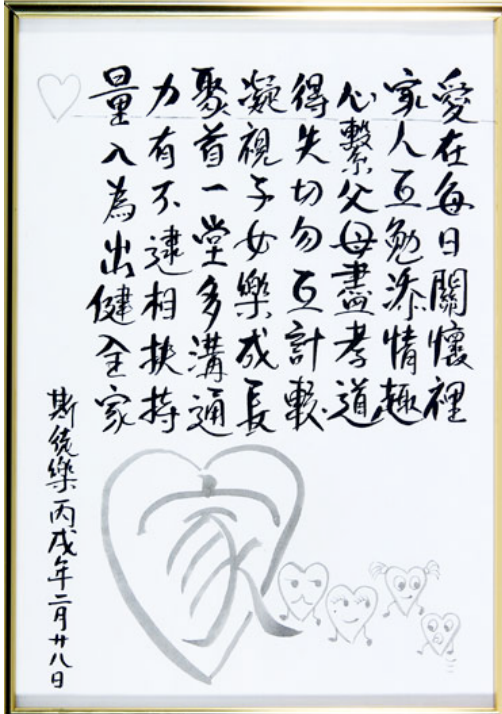 愛在每日關懷裡
家人互勉添情趣
心繫父母盡孝道
得失切勿互計較
凝視子女樂成長
聚首一堂多溝通
力有不逮相扶持
量入為出健全家
斯統樂丙戌年二月廿八日
家